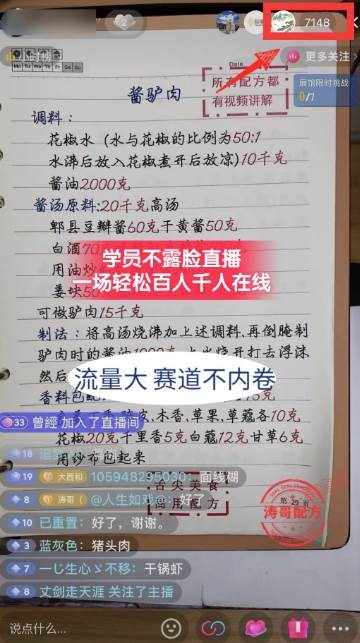 7148
小时榜
更多关注
展馆限时挑战
0/7
Date
所有配方都
有视频讲解
酱驴肉
调料：
花椒水（水与花椒的比例为50:1
水沸后放入花椒煮开后放凉）10千克
酱油2000克
酱汤原料:20千克高汤
郫县豆瓣酱60克干黄酱50克
白酒
学员不露脸直播
一场轻松百人千人在线
用油炒
姜块
可做驴肉15千克
制法：将高汤烧沸加上述调料,再倒腌制
驴肉时的酱油
然后
流量大 赛道不内卷
香料包配
33 曾經 加入了直播间
木香,草果,草蔻各10克
花椒20克千里香5克白蔻12克甘草6克
用纱布包起来
19 大西和 105948295030: 面线糊
8 涛哥 @人生如戏
好了
舌尖美食
商用配方
涛哥配方
10 已重置: 好了，谢谢。
3 蓝灰色: 猪头肉
一じ生心ゞ不移: 干锅虾
8 丈剑走天涯 关注了主播
说点什么...